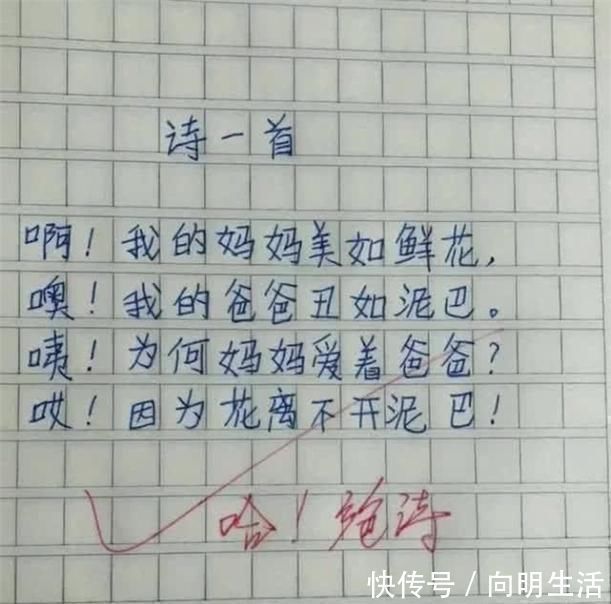 诗一首
啊！我的妈妈美如鲜花，
噢！我的爸爸丑如泥巴。
咦！为何妈妈爱着爸爸？
哎！因为花离不开泥巴！
哈！绝诗
快传号／向明生活